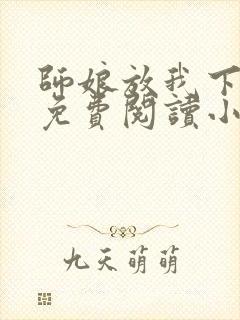 師娘放我下
免費閱讀小
九天萌萌